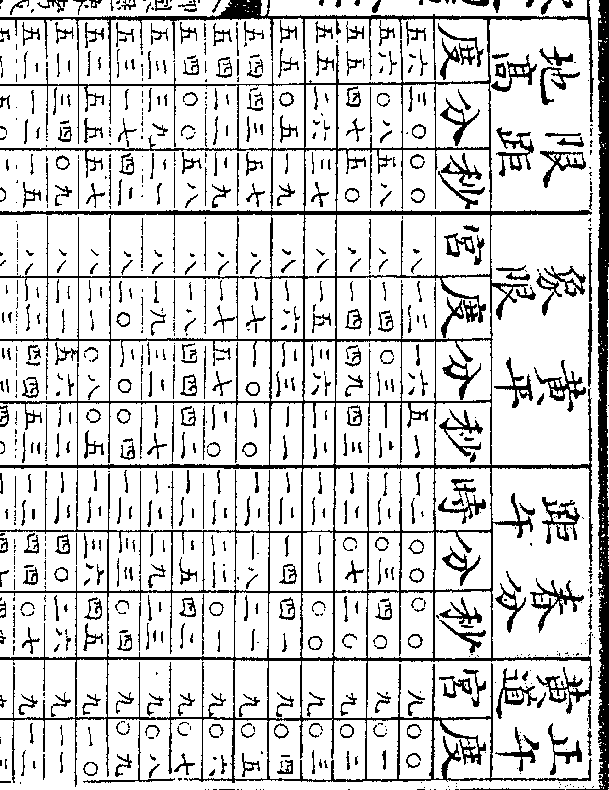 限距地高 黃平象限 春分距午 正午黃道
度 分 秒 宮 度 分 秒 時 分 秒 宮 度
五六 三〇 〇〇 八 一三 一六 五一 一二 〇〇 〇〇 九 〇〇
五六 〇八 五八 八 一四 〇三 一二 一二 〇三 四〇 九 〇一
五五 四七 五〇 八 一四 四九 四三 一二 〇七 二〇 九 〇二
五五 二六 三七 八 一五 三六 二二 一二 一一 〇〇 九 〇三
五五 〇五 一九 八 一六 二三 一一 一二 一四 四一 九 〇四
五四 四三 五七 八 一七 一〇 一〇 一二 一八 二一 九 〇五
五四 二二 二九 八 一七 五七 二〇 一二 二二 〇一 九 〇六
五四 〇〇 五八 八 一八 四四 四二 一二 二五 四二 九 〇七
五三 三九 二一 八 一九 三二 一七 一二 二九 二三 九 〇八
五三 一七 四二 八 二〇 二〇 〇四 一二 三三 〇四 九 〇九
五二 五五 五七 八 二一 〇八 〇五 一二 三六 四五 九 一〇
五二 三四 〇九 八 二一 五六 二二 一二 四〇 二六 九 一一
五二 一二 一五 八 二二 四四 五三 一二 四四 〇七 九 一二